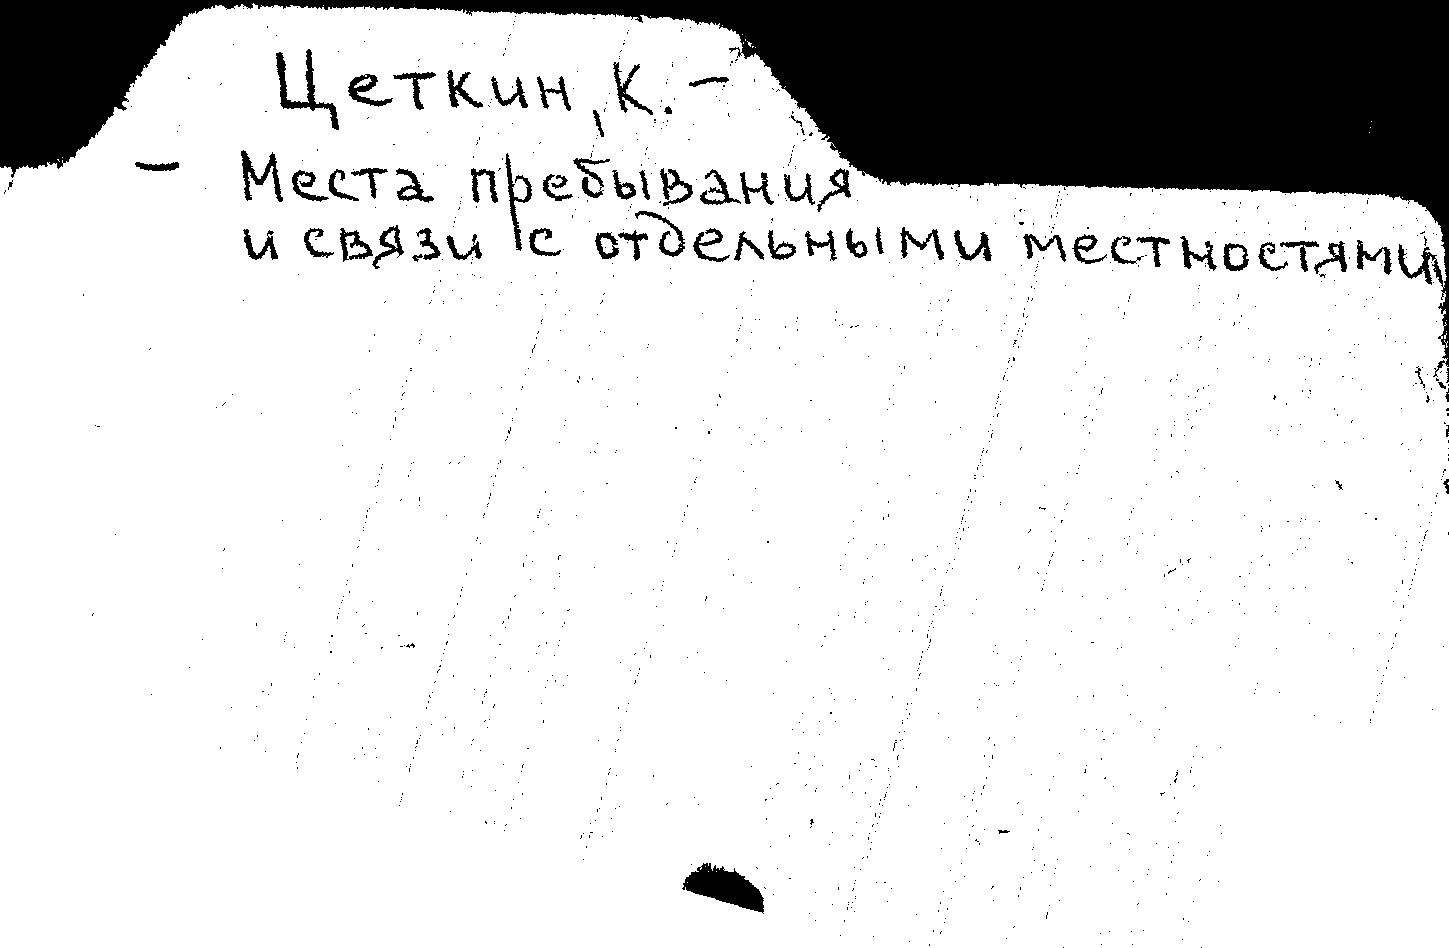 Цеткин, К. –
– Места пребывания
и связи с отдельными местностями